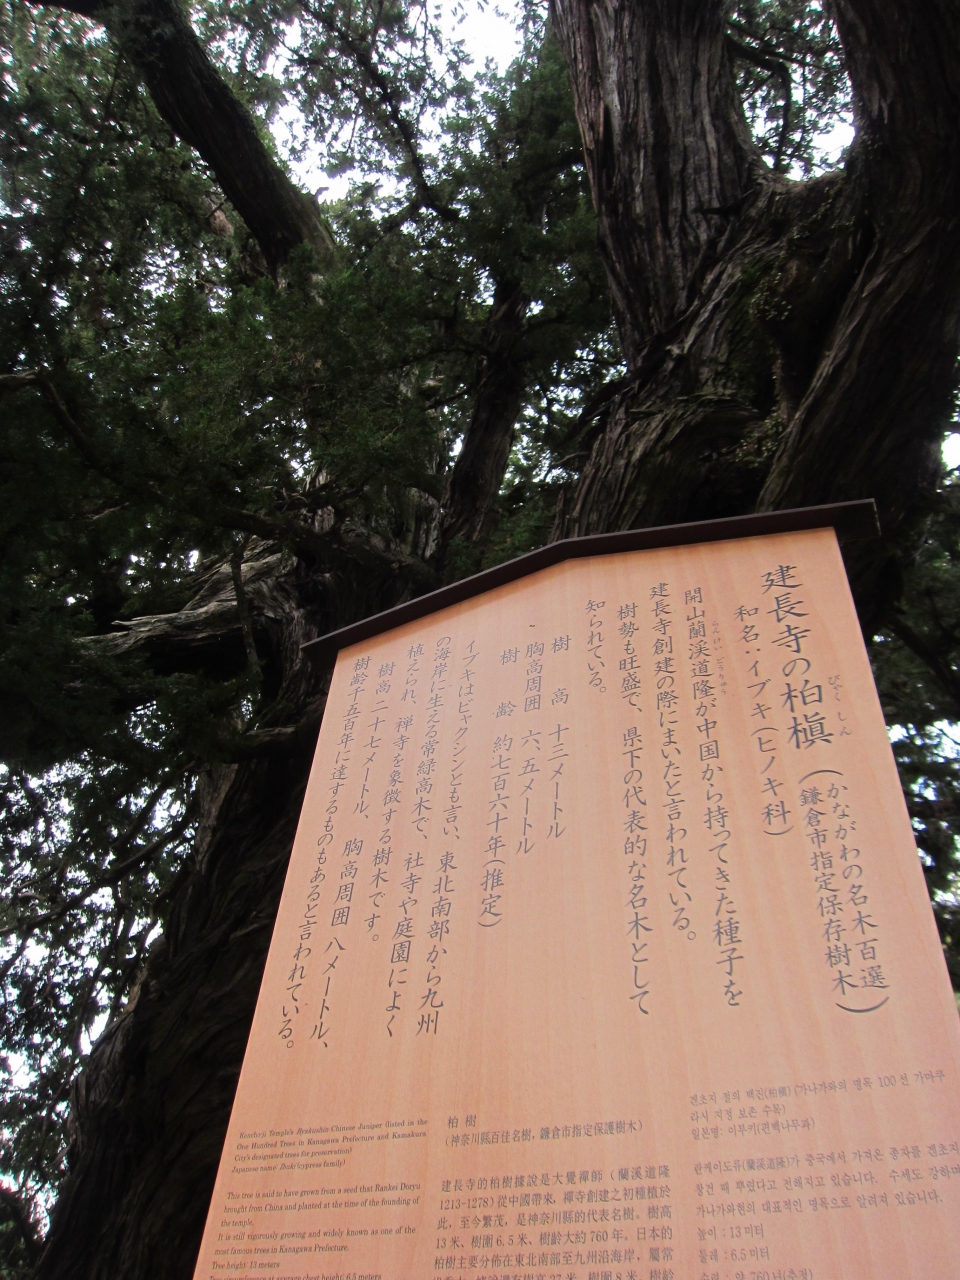 建長寺の柏槇
びゃくしん
(かながわの名木百選
鎌倉市指定保存樹木)
和名:イブキ(ヒノキ科)
開山蘭渓道隆が中国から持ってきた種子を
らんけい どうりゅう
建長寺創建の際にまいたと言われている。
樹勢も旺盛で、県下の代表的な名木として
知られている。
樹 高 十三メートル
胸高周囲 六、五メートル
樹 齢 約七百六十年(推定)
イブキはビャクシンとも言い、東北南部から九州
の海岸に生える常緑高木で、社寺や庭園によく
植えられ、禅寺を象徴する樹木です。
樹高二十七メートル、胸高周囲 八メートル、
樹齢千五百年に達するものもあると言われている。
Kenchoji Temple's Byakushin Chinese Juniper (listed in the
One Hundred Trees in Kanagawa Prefecture and Kamakura
City's designated trees for preservation)
Japanese name: Ibuki (cypress family)
This tree is said to have grown from a seed that Rankei Doryu
brought from China and planted at the time of the founding of
the temple.
It is still vigorously growing and widely known as one of the
most famous trees in Kanagawa Prefecture.
Tree height: 13 meters
Tree circumference at average chest height: 6.5 meters
柏樹
(神奈川縣百佳名樹，鎌倉市指定保護樹木)
建長寺的柏樹據說是大覺禪師（蘭溪道隆
1213-1278）從中國帶來，禪寺創建之初種植於
此，至今繁茂，是神奈川縣的代表名樹。樹高
13 米、樹圍 6.5 米、樹齡大約 760 年。日本的
柏樹主要分佈在東北南部至九州沿海岸，屬常
겐초지 절의 백진(柏槇) (가나가와의 명목 100 선 가마쿠
라시 지정 보존 수목)
일본명: 이부키(편백나무과)
란케이도류(蘭溪道隆)가 중국에서 가져온 종자를 겐초지
창건 때 뿌렸다고 전해지고 있습니다. 수세도 강하며
가나가와현의 대표적인 명목으로 알려져 있습니다.
높이 : 13 미터
둘레 : 6.5 미터
수령 : 약 760 년(추정)